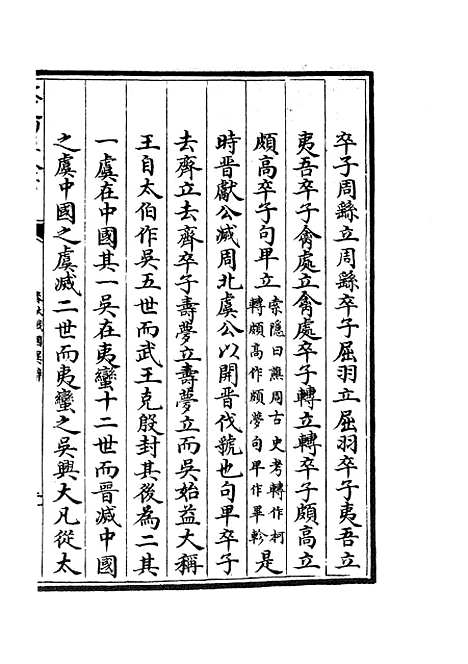 卒子周繇立周繇卒子屈羽立屈羽卒子夷吾立
夷吾卒子禽處立禽處卒子轉立轉卒子頗高立
頗高卒子句卑立索隱曰譙周古史考轉作柯轉頗高作頗夢句卑作畢軫是
時晉獻公滅周北虞公以開晉伐虢也句卑卒子
去齊立去齊卒子壽夢立壽夢立而吳始益大稱
王自太伯作吳五世而武王克殷封其後為二其
一虞在中國其一吳在夷蠻十二世而晉滅中國
之虞中國之虞滅二世而夷蠻之吳興大凡從太
春秋戰國異辭